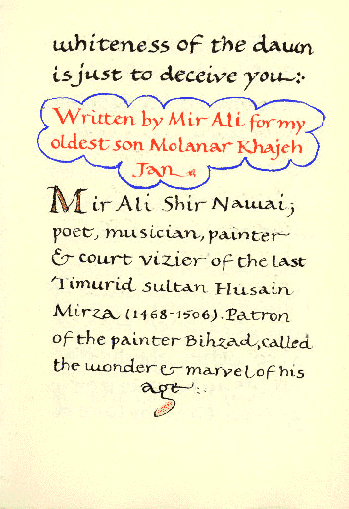 whiteness of the dawn
is just to deceive you
Written by Mir Ali for my
oldest son Molanar Khajeh
Jan
Mir Ali Shir Nawai;
poet, musician, painter
& court vizier of the last
Timurid sultan Husain
Mirza (1468-1506). Patron
of the painter Bihzad, called
the wonder & marvel of his
age